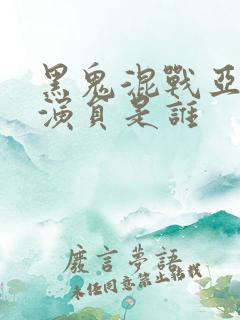 黑鬼混戰亞
演員是誰
廢言夢語
未任同意禁止轉載